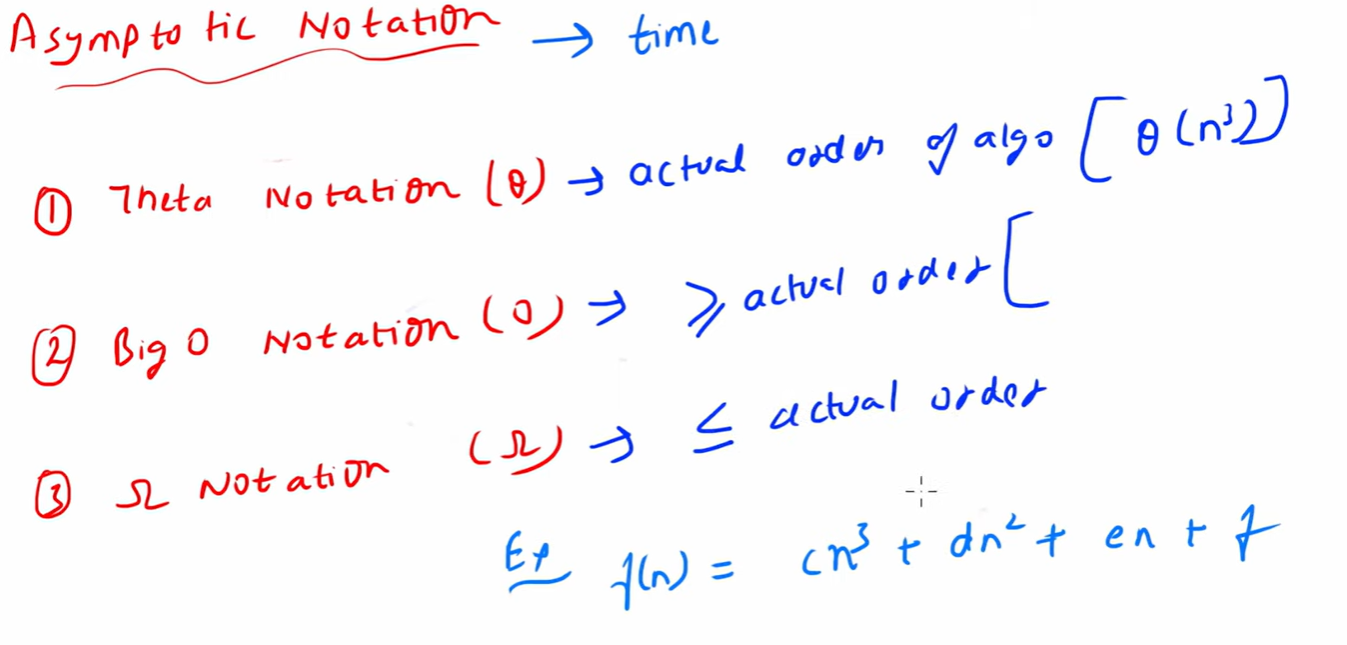 Asymptotic Notation → time
① Theta Notation (θ) → actual order of algo [θ(n³)]
② Big O Notation (O) → ⩾ actual order [
③ Ω Notation (Ω) → ≤ actual order
Ex f(n) = cn³ + dn² + en + f